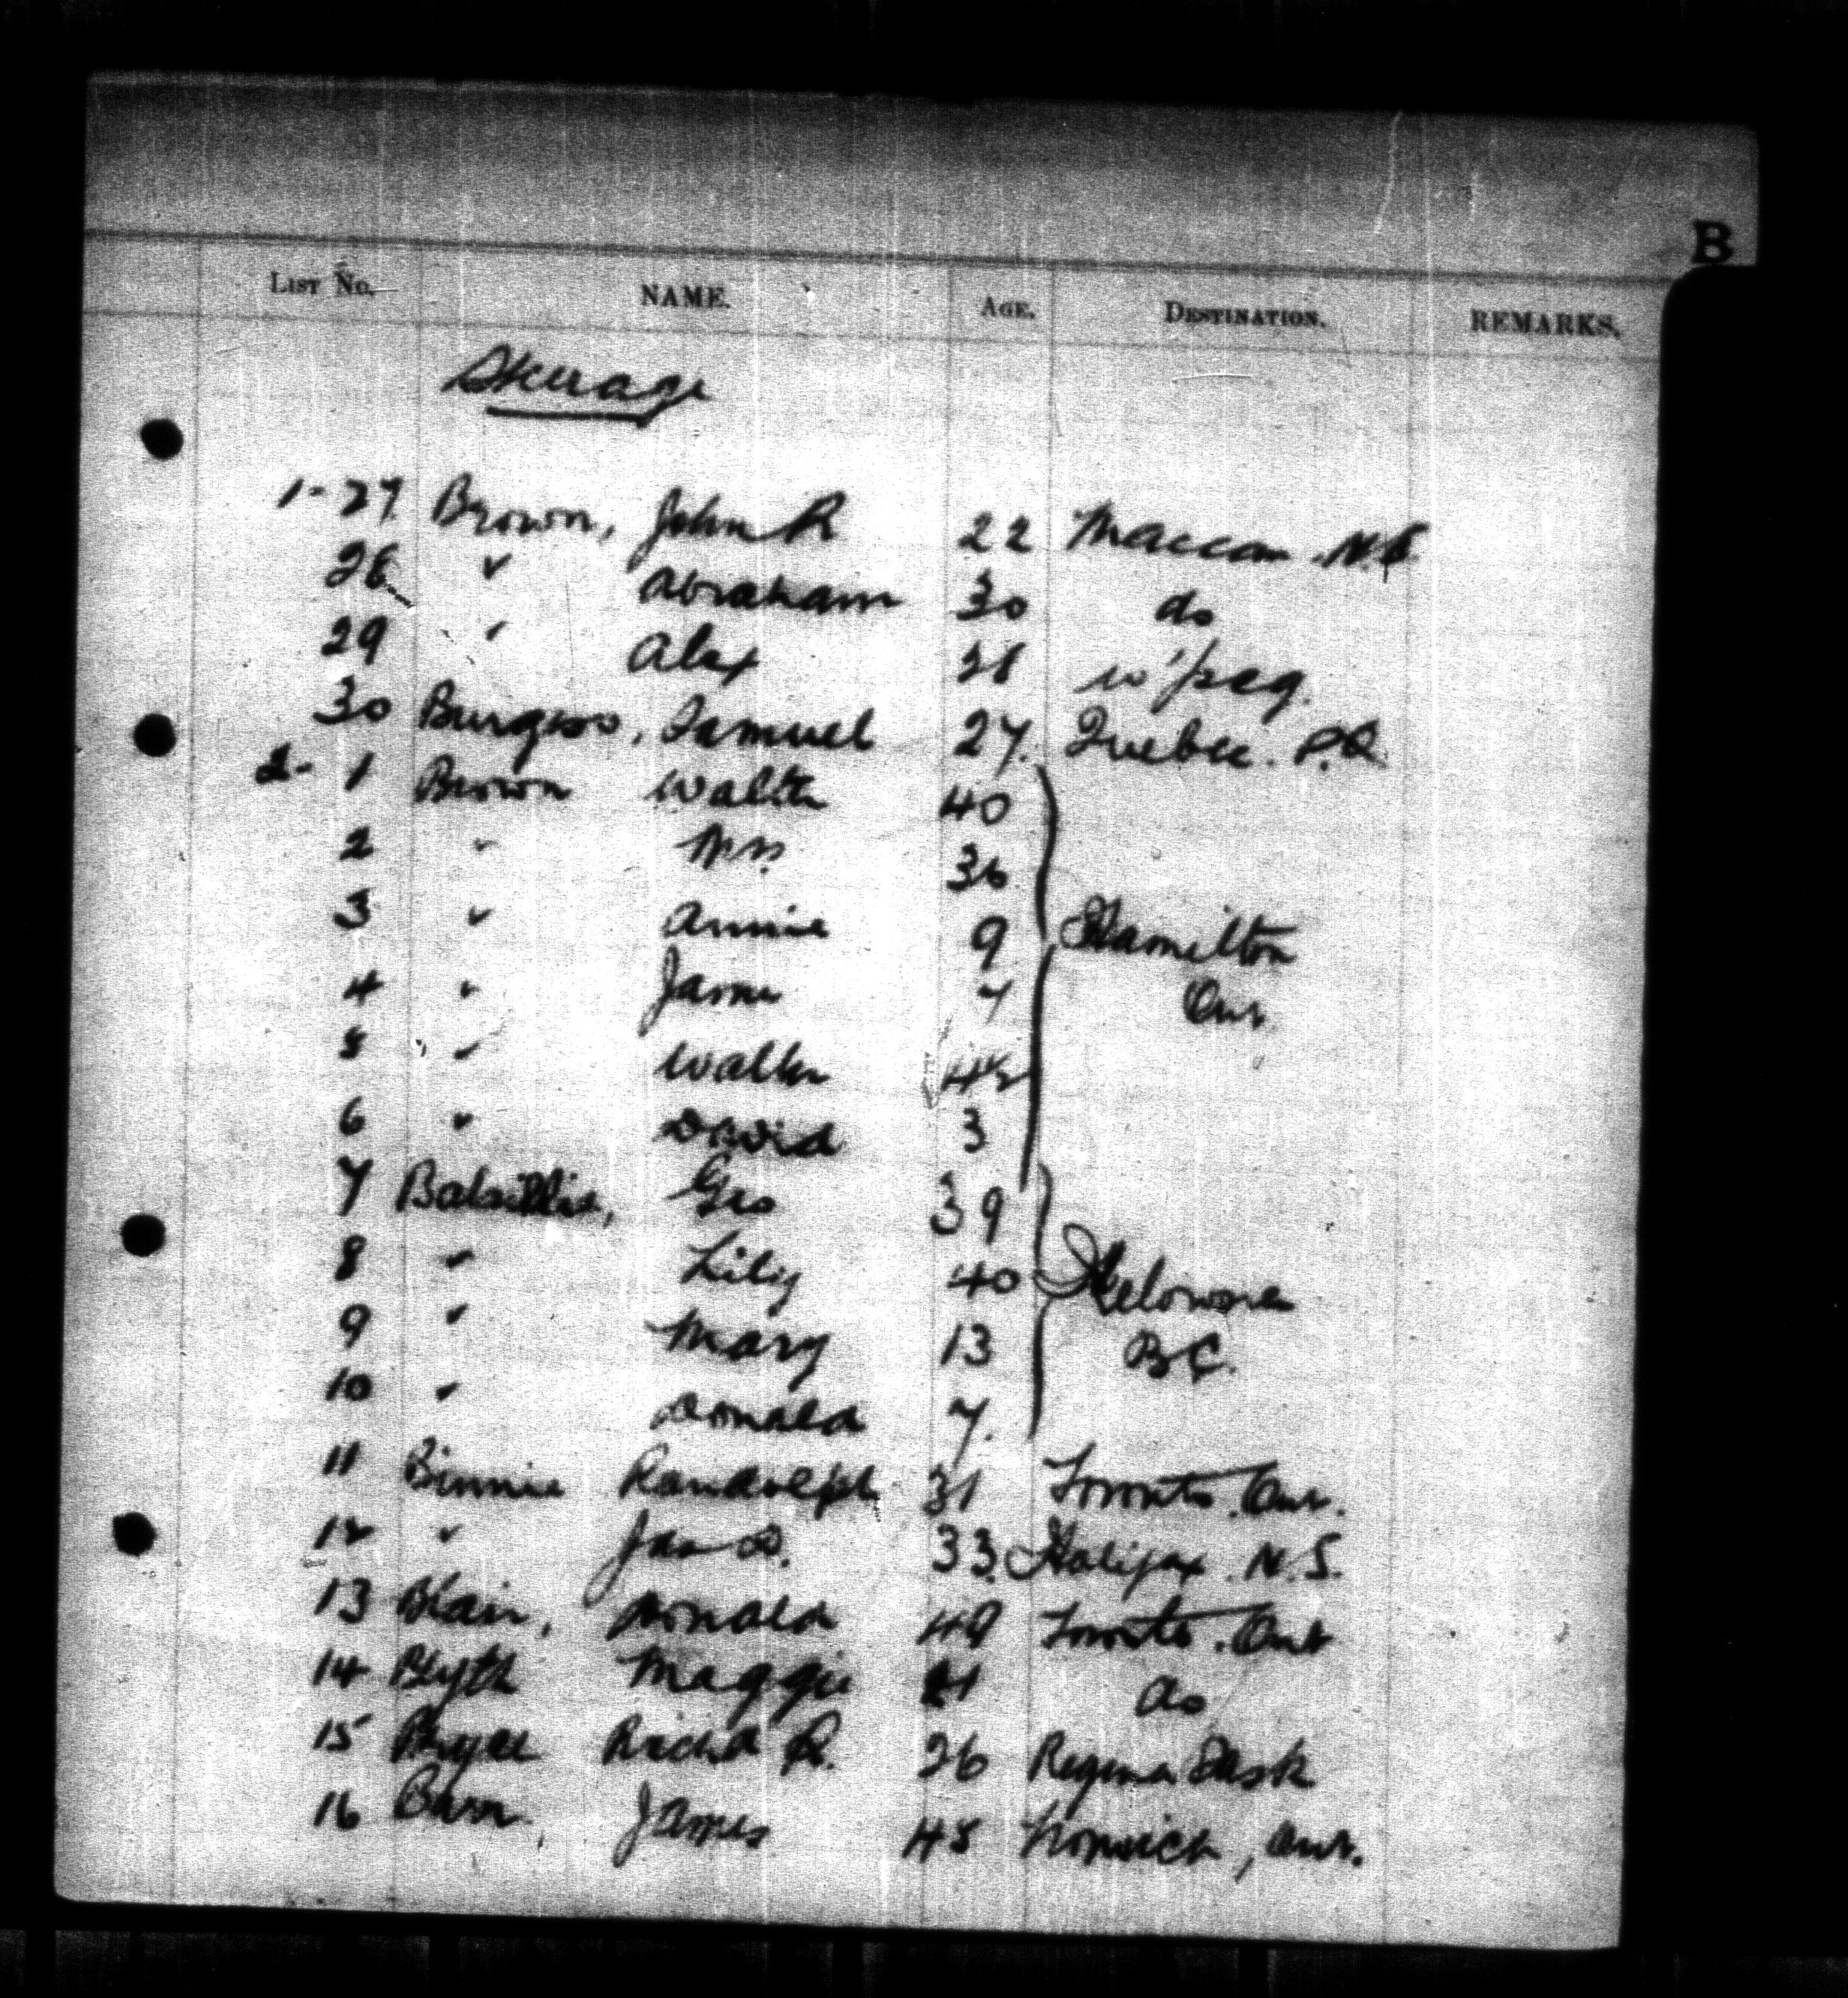 B
LIST NO. NAME. AGE. DESTINATION. REMARKS.
Steerage
1-27 Brown, John R 22 Maccan N.S.
28 " Abraham 30 do
29 " Alex 38 W'peg.
30 Burgess, Samuel 27. Quebec. P.Q.
2-1 Brown Walter 40
2 " Mrs 36
3 " Annie 9 Hamilton
4 " James 7 Ont
5 " Walter 4½
6 " David 3
7 Balsillie, Geo 39
8 " Lily 40 Kelowna
9 " Mary 13 B.C.
10 " Donald 7.
11 Binnie Randolph 31 Toronto. Ont.
12 " Jas D. 33. Halifax. N.S.
13 Blair, Donald 49 Toronto. Ont
14 Blyth Maggie 21 do
15 Bryce Richd R. 26 Regina Sask
16 James 45 Norwich, Ont.